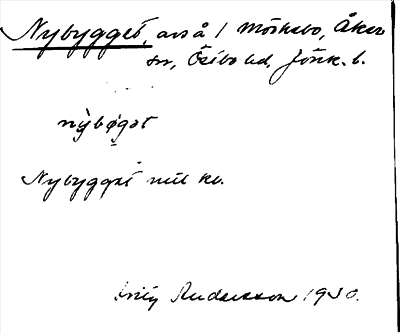 Nybygget, avs å 1 Mörkebo, Åkers
sn, Östbo hd, Jönk. l.
nỳbø̣gət
Nybygget mil kv.
Andersson 1930.